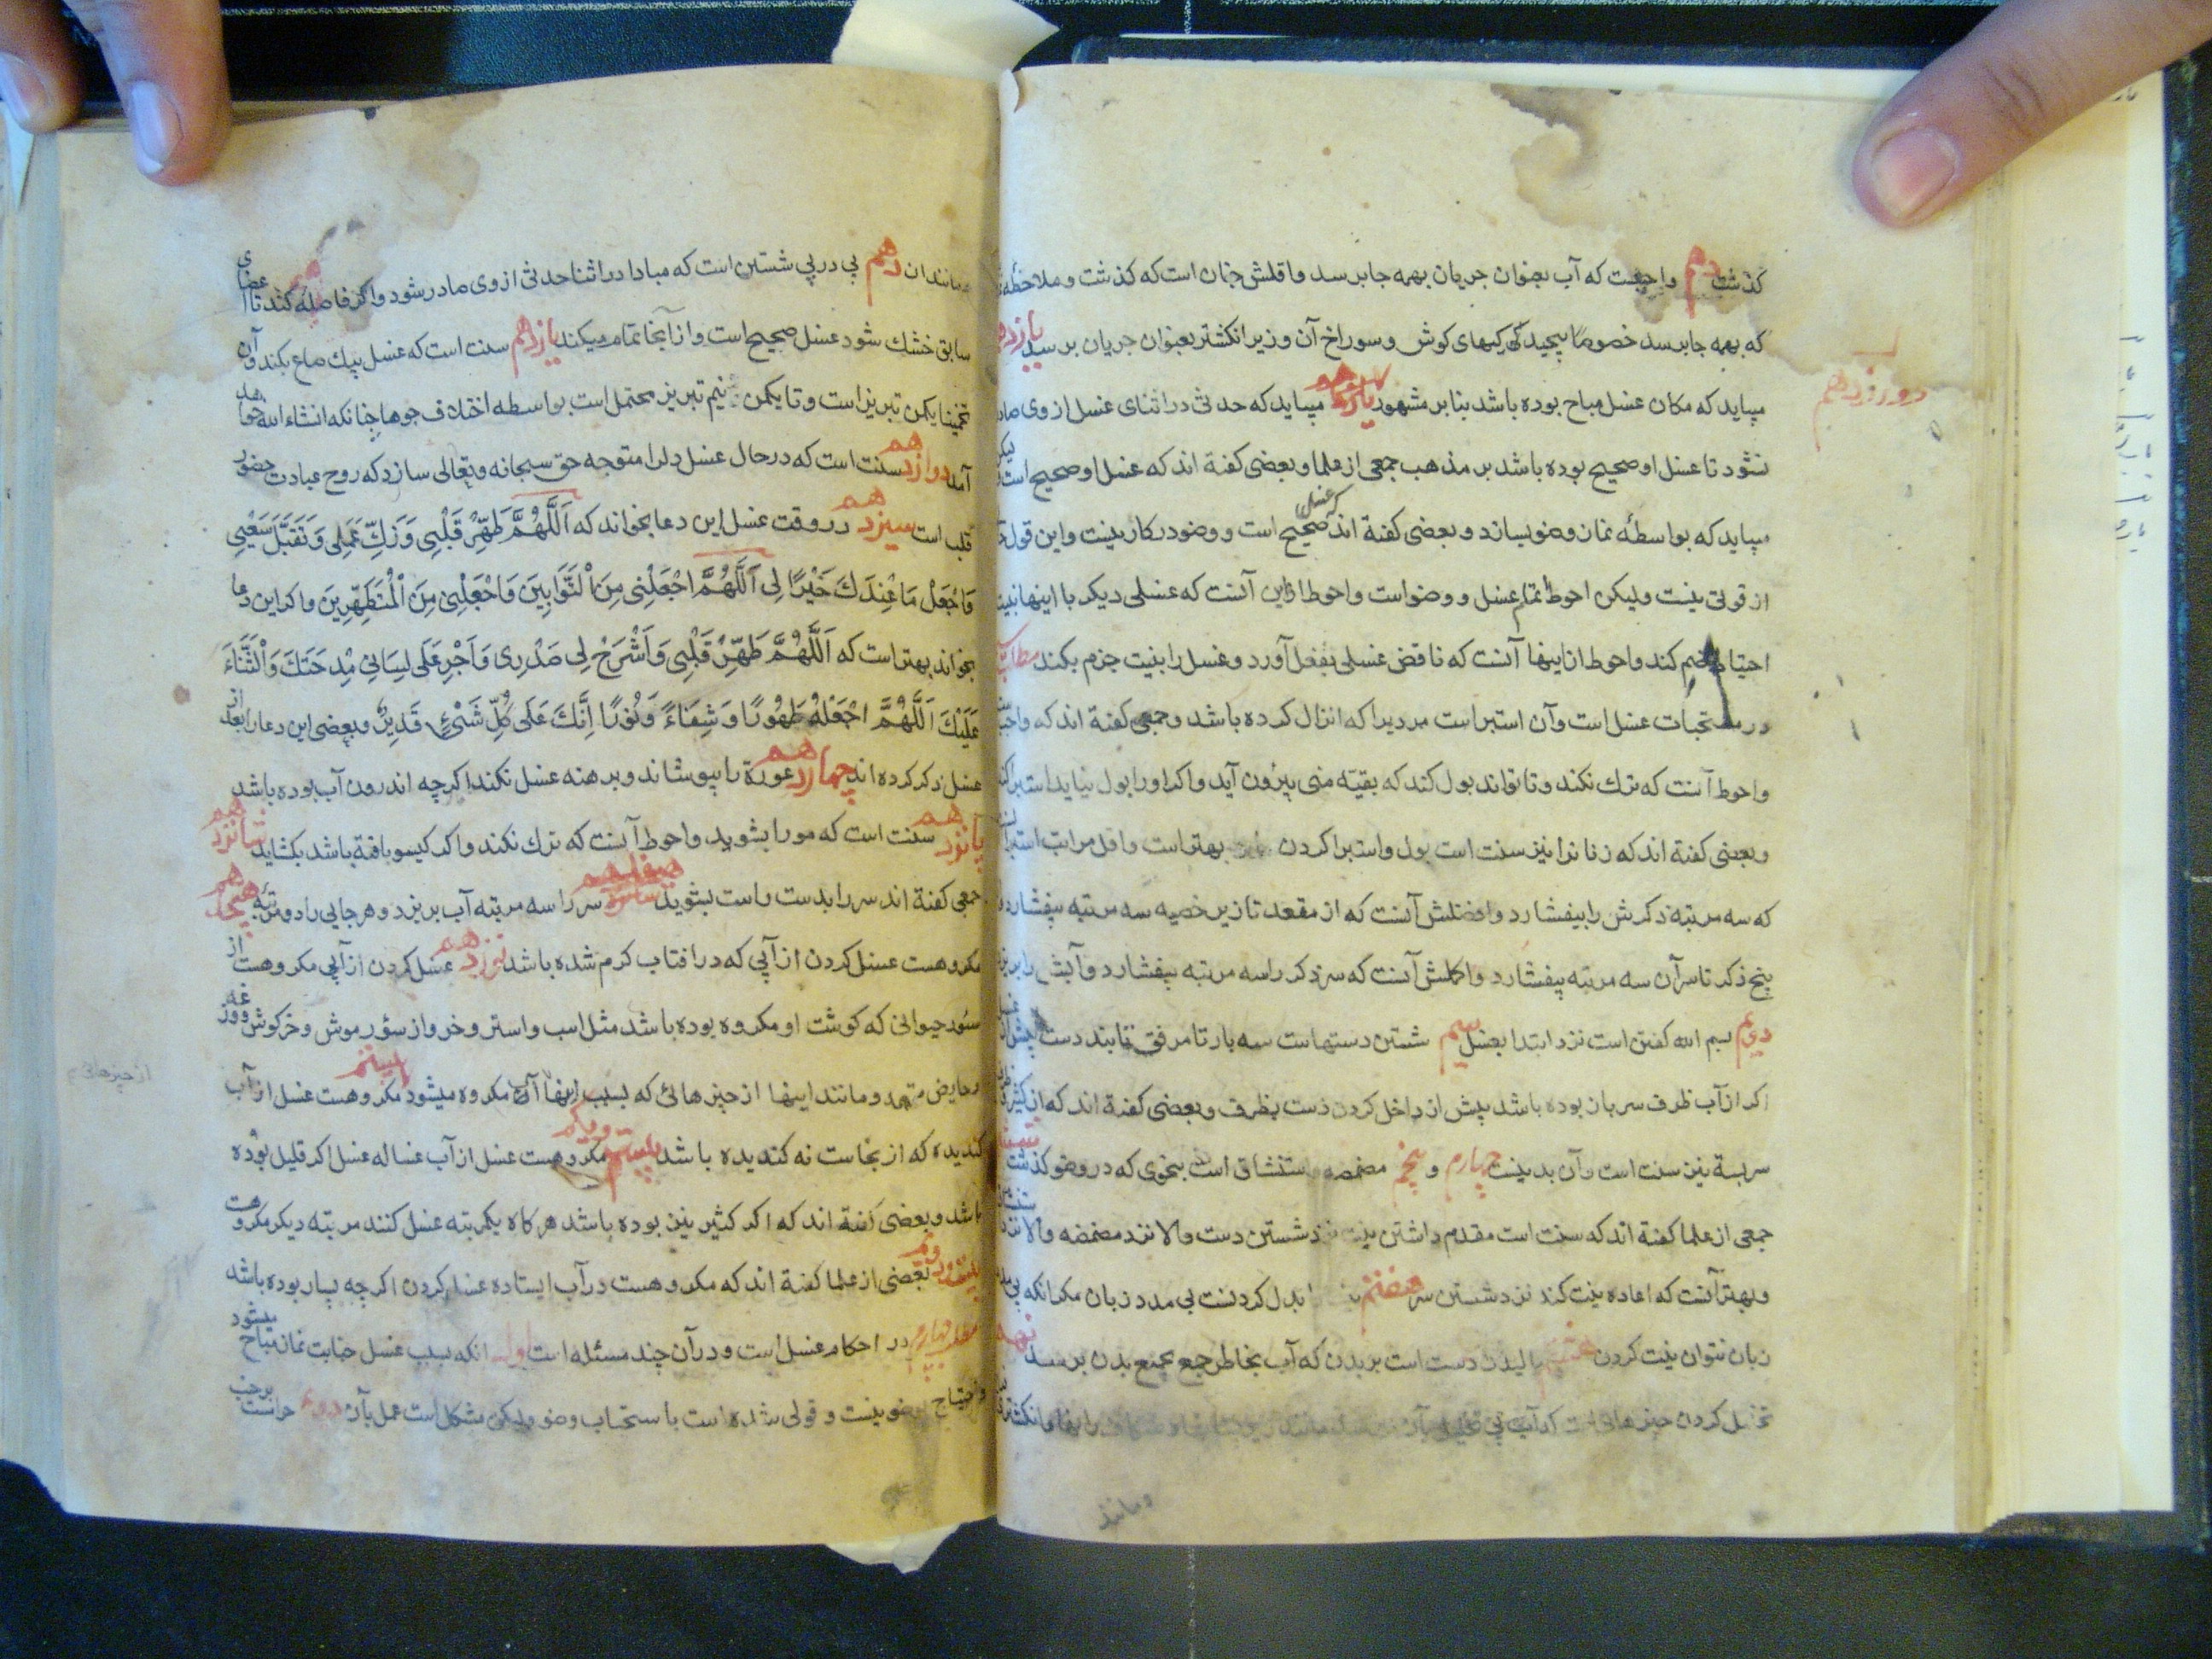 کذشت دهم واجبست که آب بعنوان جریان بهمه جا برسد واقلش چنان است که کذشت وملاحظه
که بهمه جا برسد خصوصا پیچیدکیهای کوش وسوراخ آن وزیر انکشتر بعنوان جریان برسد یازدهم
میباید که مکان غسل مباح بوده باشد بنا بر مشهور میباید که حدثی در اثنای غسل از وی صادر
دوازدهم
نشود تا غسل او صحیح بوده باشد بر مذهب جمعی از علما وبعضی کفته اند که غسل او صحیح است لیکن
میباید که بواسطهٔ نماز وضو بسازد وبعضی کفته اند که غسل صحیح است ووضو در کار نیست واین قول
از قوتی نیست ولیکن احوط اتمام غسل ووضو است واحوط ازین آنست که غسلی دیکر با اینها بنیت
احتیاط ضم کند واحوط از اینها آنست که ناقض غسلی بفعل آورد وغسل را بنیت جزم بکند مطلب
در مستحبات غسل است وآن استبراست مردیرا که انزال کرده باشد وجمعی کفته اند که واجب
واحوط آنست که ترک نکند وتا تواند بول کند که بقیّه منی بیرون آید واکر اورا بول نیاید استبرا کند
وبعضی کفته اند که زنانرا نیز سنت است بول واستبرا کردن بهتر است واقل مراتب استبرا
که سه مرتبه ذکرش را بیفشارد وافضلش آنست که از مقعد تا زیر خصیه سه مرتبه بیفشارد
بیخ ذکر تا سر آن سه مرتبه بیفشارد واکملش آنست که سر ذکر را سه مرتبه بیفشارد وآبش را بریزد
دویم بسم الله کفتن است نزد ابتدا بغسل سیم شستن دستهاست سه بار تا مرفق تا بند دست پیش از غسل
اکر از آب ظرف سر باز بوده باشد پیش از داخل کردن دست بظرف وبعضی کفته اند که از کثیر
سربسته نیز سنت است وآن بدنیست چهارم و پنجم مضمضه واستنشاق است بنحوی که در وضو کذشت
جمعی از علما کفته اند که سنت است مقدم داشتن نیت نزد شستن دست والا نزد مضمضه والا نزد
وبهتر آنست که اعاده نیت کند نزد شستن سر هفتم بدل کردنست بی مدد زبان مکر انکه بی مدد
زبان نتوان نیت کردن هشتم مالیدن دست است بر بدن که آب بخاطر جمع بجمیع بدن برسد نهم
تخلیل کردن چیزهائی است که آب بی تخلیل بآن
ومانند
مانند ان دهم پی در پی شستن است که مبادا در اثنا حدثی از وی صادر شود واکر فاصله کند تا اعضای
سابق خشک شود غسل صحیح است واز آنجا تمام میکند یازدهم سنت است که غسل بیک صاع بکند وآن
تخمینا یکمن تبریز است وتا یکمن نیم تبریز محتمل است بواسطه اختلاف جوها چنانکه انشاء الله خواهد
آمد دوازدهم سنت است که در حال غسل دلرا متوجه حق سبحانه وتعالی سازد که روح عبادت حضور
قلب است سیزدهم در وقت غسل این دعا بخواند که اَللَّهُمَّ طَهِّرْ قَلْبِی وَزَكِّ عَمَلِی وَتَقَبَّلْ سَعْیِی
وَاجْعَلْ مَا عِنْدَكَ خَیْرًا لِی اَللَّهُمَّ اجْعَلْنِی مِنَ التَّوَّابِینَ وَاجْعَلْنِی مِنَ الْمُتَطَهِّرِینَ واکر این دعا
بخواند بهتر است که اَللَّهُمَّ طَهِّرْ قَلْبِی وَاشْرَحْ لِی صَدْرِی وَاَجْرِ عَلَی لِسَانِی مِدْحَتَكَ وَالثَّنَاءَ
عَلَیْكَ اَللَّهُمَّ اجْعَلْهُ طَهُورًا وَشِفَاءً وَنُورًا اِنَّكَ عَلَی كُلِّ شَیْءٍ قَدِیرٌ وبعضی این دعا را بعد از
غسل ذکر کرده اند چهاردهم عورة را بپوشاند وبرهنه غسل نکند اکرچه اندرون آب بوده باشد
پانزدهم سنت است که مو را بشوید واحوط آنست که ترک نکند واکر کیسو بافته باشد بکشاید شانزدهم
جمعی کفته اند سر را بدست راست بشوید هفدهم سر را سه مرتبه آب بریزد وهر جایی را دو مرتبه هیجدهم
مکروهست غسل کردن از آبی که در افتاب کرم شده باشد نوزدهم غسل کردن از آبی مکروهست از
سؤر حیوانی که کوشت او مکروه بوده باشد مثل اسب واستر وخر واز سؤر موش وخرکوش ووزغه
وحایض متهمه ومانند اینها از چیزهائی که بسبب اینها آن مکروه میشود بیستم مکروهست غسل از آب
از چیزهائی
کندیده که از نجاست نه کندیده باشد بیست ویکم مکروهست غسل از آب غساله غسل اکر قلیل بوده
باشد وبعضی کفته اند که اکر کثیر نیز بوده باشد هرکاه یکمرتبه غسل کنند مرتبه دیکر مکروهست
بیست ودویم بعضی از علما کفته اند که مکروهست در آب ایستاده غسل کردن اکرچه بسیار بوده باشد
مطلب چهارم در احکام غسل است ودر آن چند مسئله است اول انکه بسبب غسل جنابت نماز مباح میشود
واحتیاج بوضو نیست وقولی شده است باستحباب وضو ولیکن مشکل است عمل بآن دویم حرامست بر جنب